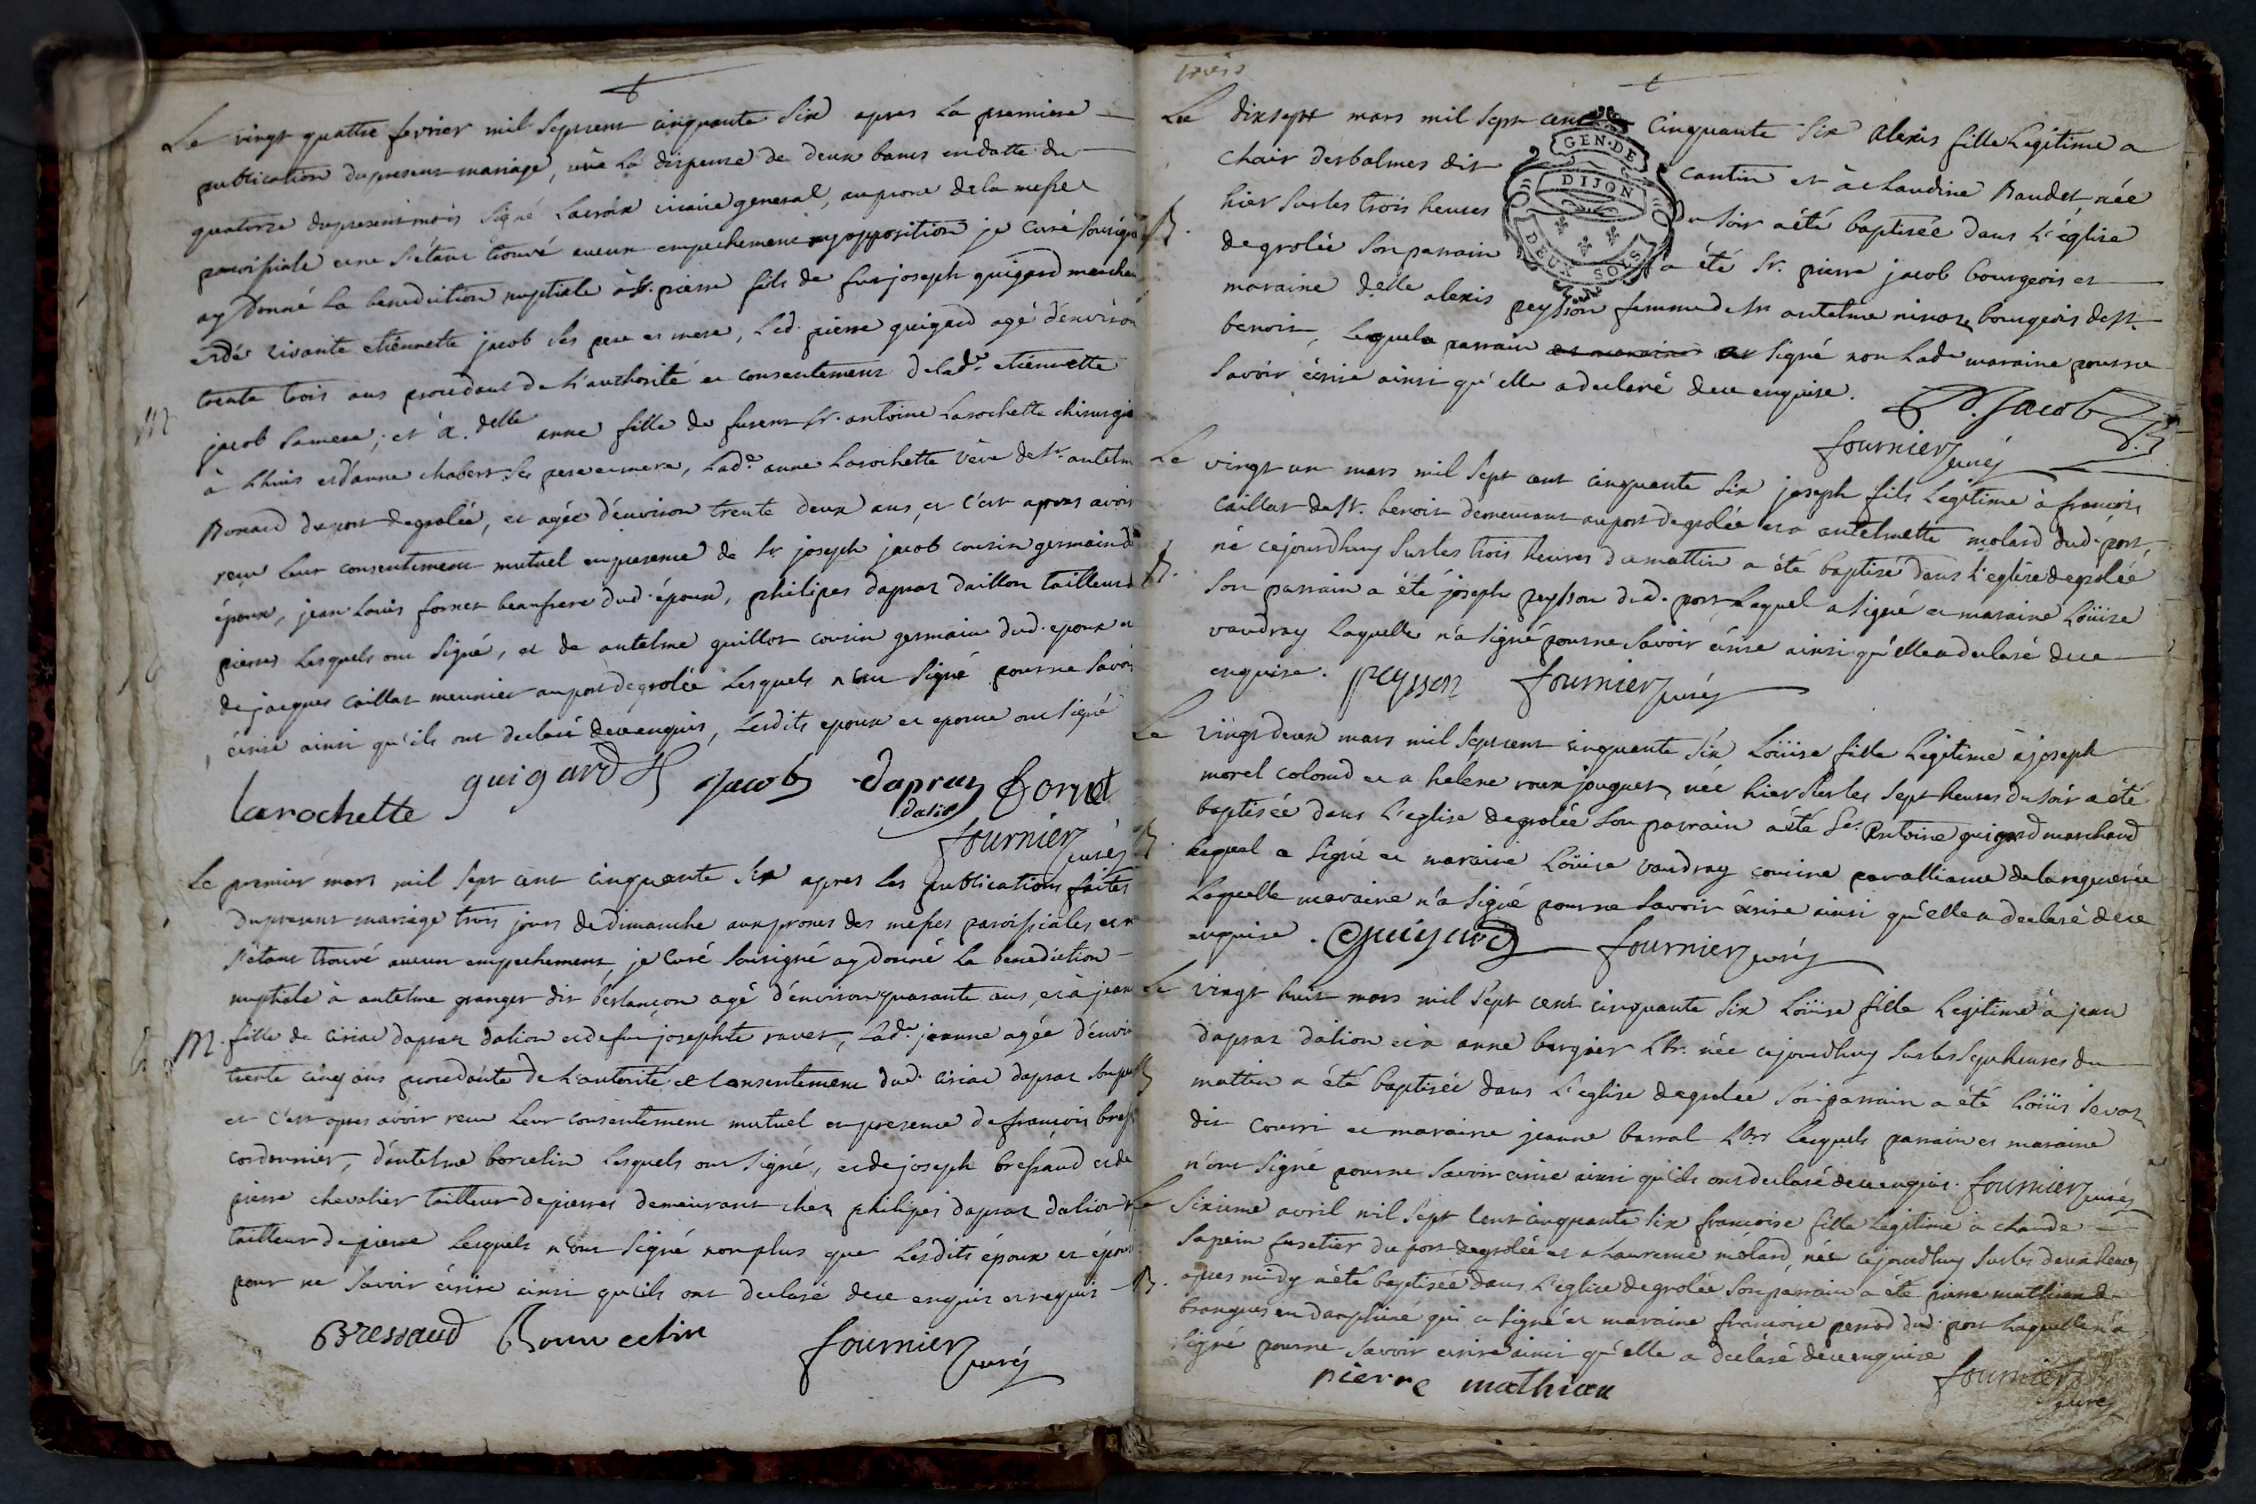 Le vingt quattre fevrier mil sept cent cinquante six apres la premiere
publication du present mariage, vüe la dispense de deux bancs en datte du
quatorze du present mois signé Lacroix vicaire general, au prone de la messe
paroissiale et ne s'étant trouvé aucun empechement ny opposition je curé sousigné
ay donné la benediction nuptiale à Sr. pierre fils de feu joseph guigard marchan
et de vivante etiennette jacob ses pere et mere, led. pierre guigard agé d'environ
trente trois ans procedant de l'authorité et consentement de lade. etiennette
jacob sa mere; et à delle anne fille de feu Sr. antoine Larochette chirurgie
à Lhuis et d'anne chabert ses pere et mere, lade. anne Larochette veve de Sr. antelm
Bonard du port de grolée, et agée d'environ trente deux ans, et c'est apres avoir
reçu leur consentement mutuel en presence de Sr joseph jacob cousin germain du
époux, jean Louis fornet beaufrere dud. époux, philipes dapraz daillon tailleur de
pierres lesquels ont signé, et de antelme guillot cousin germain dud. epoux et
de jacques caillat meunier au port de grolée lesquels n'ont signé pour ne savoir
écrire ainsi qu'ils ont declaré de ce enquis, lesdits epoux et epouse ont signé
larochette guigard jacob dapraz Fornet
dalio
fournier curé
Le premier mars mil sept cent cinquante six apres les publications faites
du present mariage trois jours de dimanche aux prones des messes paroissiales et ne
s'étant trouvé aucun empechement, je curé sousigné ay donné la benediction
nuptiale à antelme granger dit berlançon agé d'environ quarante ans, et à jean
M. fille de ciriac dapraz dalion et de feu josephte ravet, lade. jeanne agée d'envir
trente cinq ans procedante de l'autorité et consentement dud. ciriac dapraz son pe
et c'est apres avoir recu leur consentement mutuel en presence de francois bress
cordonnier, d'antelme borcelin lesquels ont signé, et de joseph bressaud et de
pierre chevalier tailleur de pierres demeurant chez philipes dapraz dalion
tailleur de pierre lesquels n'ont signé non plus que lesdits époux et épous
pour ne savoir écrire ainsi qu'ils ont declaré de ce enquis et requis
Bressaud fournier curé
trois
Le dix sept mars mil sept cent cinquante six alexis fille legitime a
GEN. DE
DIJON
DEUX SOLS
chair desbalmes dit cantin et à claudine Baudet née
hier sur les trois heures du soir a été baptisée dans l'église
B.
de grolée son parrain a été Sr. pierre jacob bourgeois et
maraine delle alexis peysson femme de Sr antelme bourgeois de St.
benoit, lequel parrain a signé non lade maraine pour ne
savoir écrire ainsi qu'elle a declaré de ce enquise. P. Jacob
fournier curé
Le vingt un mars mil sept cent cinquante six joseph fils legitime à françois
caillat de St. benoit demeurant au port de grolée et a antelmette molard dud. port,
né cejourdhuy sur les trois heures du mattin a été baptisé dans l'eglise de grolée
B.
son parrain a été joseph peysson dud. port lequel a signé et maraine Loüise
vaudray laquelle n'a signé pour ne savoir écrire ainsi qu'elle a declaré de ce
enquise. peysson fournier curé
Le vingt deux mars mil sept cent cinquante six Loüise fille legitime à joseph
morel colomd et a helene roux jouguet, née hier sur les sept heures du soir a été
baptisée dans l'eglise de grolée son parrain a été Sr. Antoine guigard marchand
B.
lequel a signé et maraine Loüise vaudray cousine par alliance
laquelle maraine n'a signé pour ne savoir écrire ainsi qu'elle a declaré de ce
enquise. Guigard fournier curé
Le vingt huit mars mil sept cent cinquante six Loüise fille legitime à jean
dapraz dalion et à anne bergier née cejourdhuy sur les sept heures du
mattin a été baptisée dans l'eglise de grolée son parrain a été Loüis
dit courri et maraine jeanne barral lesquels parrain et maraine
n'ont signé pour ne savoir écrire ainsi qu'ils ont declaré de ce enquis. fournier curé
Le sixieme avril mil sept cent cinquante six francoise fille legitime à claude
sapein fusetier du port de grolée et a Laurence molard, née cejourdhuy sur les deux heures
B. apres midy a été baptisée dans l'eglise de grolée son parrain a été pierre mathieu de
brangues en dauphiné qui a signé et maraine francoise perrod dud. port laquelle n'a
signé pour ne savoir écrire ainsi qu'elle a declaré de ce enquise
pierre mathieu fournier curé